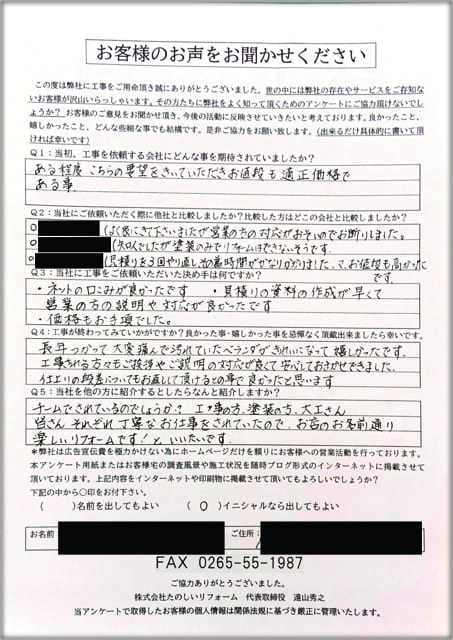 お客様のお声をお聞かせください
この度は弊社に工事をご用命頂き誠にありがとうございました。世の中には弊社の存在やサービスをご存知な
いお客様が沢山いらっしゃいます。その方たちに弊社をよく知って頂くためのアンケートにご協力頂けないでし
ょうか？ お客様のご意見をお聞かせ頂き、今後の活動に反映させていきたいと考えております。良かったこと、
嬉しかったこと、どんな些細な事でも結構です。是非ご協力をお願い致します。(出来るだけ具体的に書いて頂
ければ幸いです)
Q1：当初、工事を依頼する会社にどんな事を期待されていましたか？
ある程度こちらの要望をきいていただきお値段も適正価格で
ある事
Q2：当社にご依頼いただく際に他社と比較しましたか？比較した方はどこの会社と比較しましたか？
○ (よく表にきて下さいましたが営業の方の対応がおそいのでお断りしました。
○ (たのもしたが塗装のみでリフォームはできないそうです。
○ (見積りを3回やり直し、その着時間がかなりかかりました、で、お値段も高かった
です。
Q3：当社に工事をご依頼いただいた決め手は何ですか？
・ネットの口こみが良かったです ・見積りの資料の作成が早くて
営業の方の説明や対応が良かったです
・価格もお手頃でした。
Q4：工事が終わってみていかがですか？良かった事・嬉しかった事を忌憚なく頂戴出来ましたら幸いです。
長年つかって大変痛んで汚れていたベランダがきれいになって嬉しかったです。
工事される方々もご挨拶やご説明の対応が良くて安心しておまかせできました。
仕上りの段差についてもお直しして頂けるとの事で良かったと思います
Q5：当社を他の方に紹介するとしたらなんと紹介しますか？
チームでされているのでしょうか？ 工事の方、塗装の方、大工さん
皆さんそれぞれ丁寧なお仕事をされていたので、お店のお名前通り
楽しいリフォームです！と、いいたいです。
＊弊社は広告宣伝費を極力かけない為にホームページだけを頼りにお客様への営業活動を行っております。
本アンケート用紙またはお客様宅の調査風景や施工状況を随時ブログ形式のインターネットに掲載させて
頂いております。上記内容をインターネットや印刷物に掲載させて頂いてもよろしいでしょうか？
下記の中から○印をお付下さい。
( )名前を出してもよい ( ○ )イニシャルなら出してもよい
お名前： ご住所：
FAX 0265-55-1987
ご協力ありがとうございました。
株式会社たのしいリフォーム 代表取締役 遠山秀之
当アンケートで取得したお客様の個人情報は関係法規に基づき厳正に管理いたします。